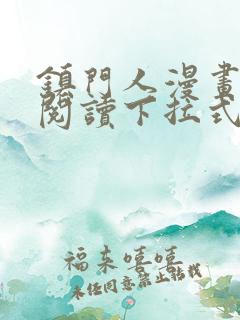 鎮門人漫畫
閱讀下拉式
福来嘻嘻
未经同意禁止转载